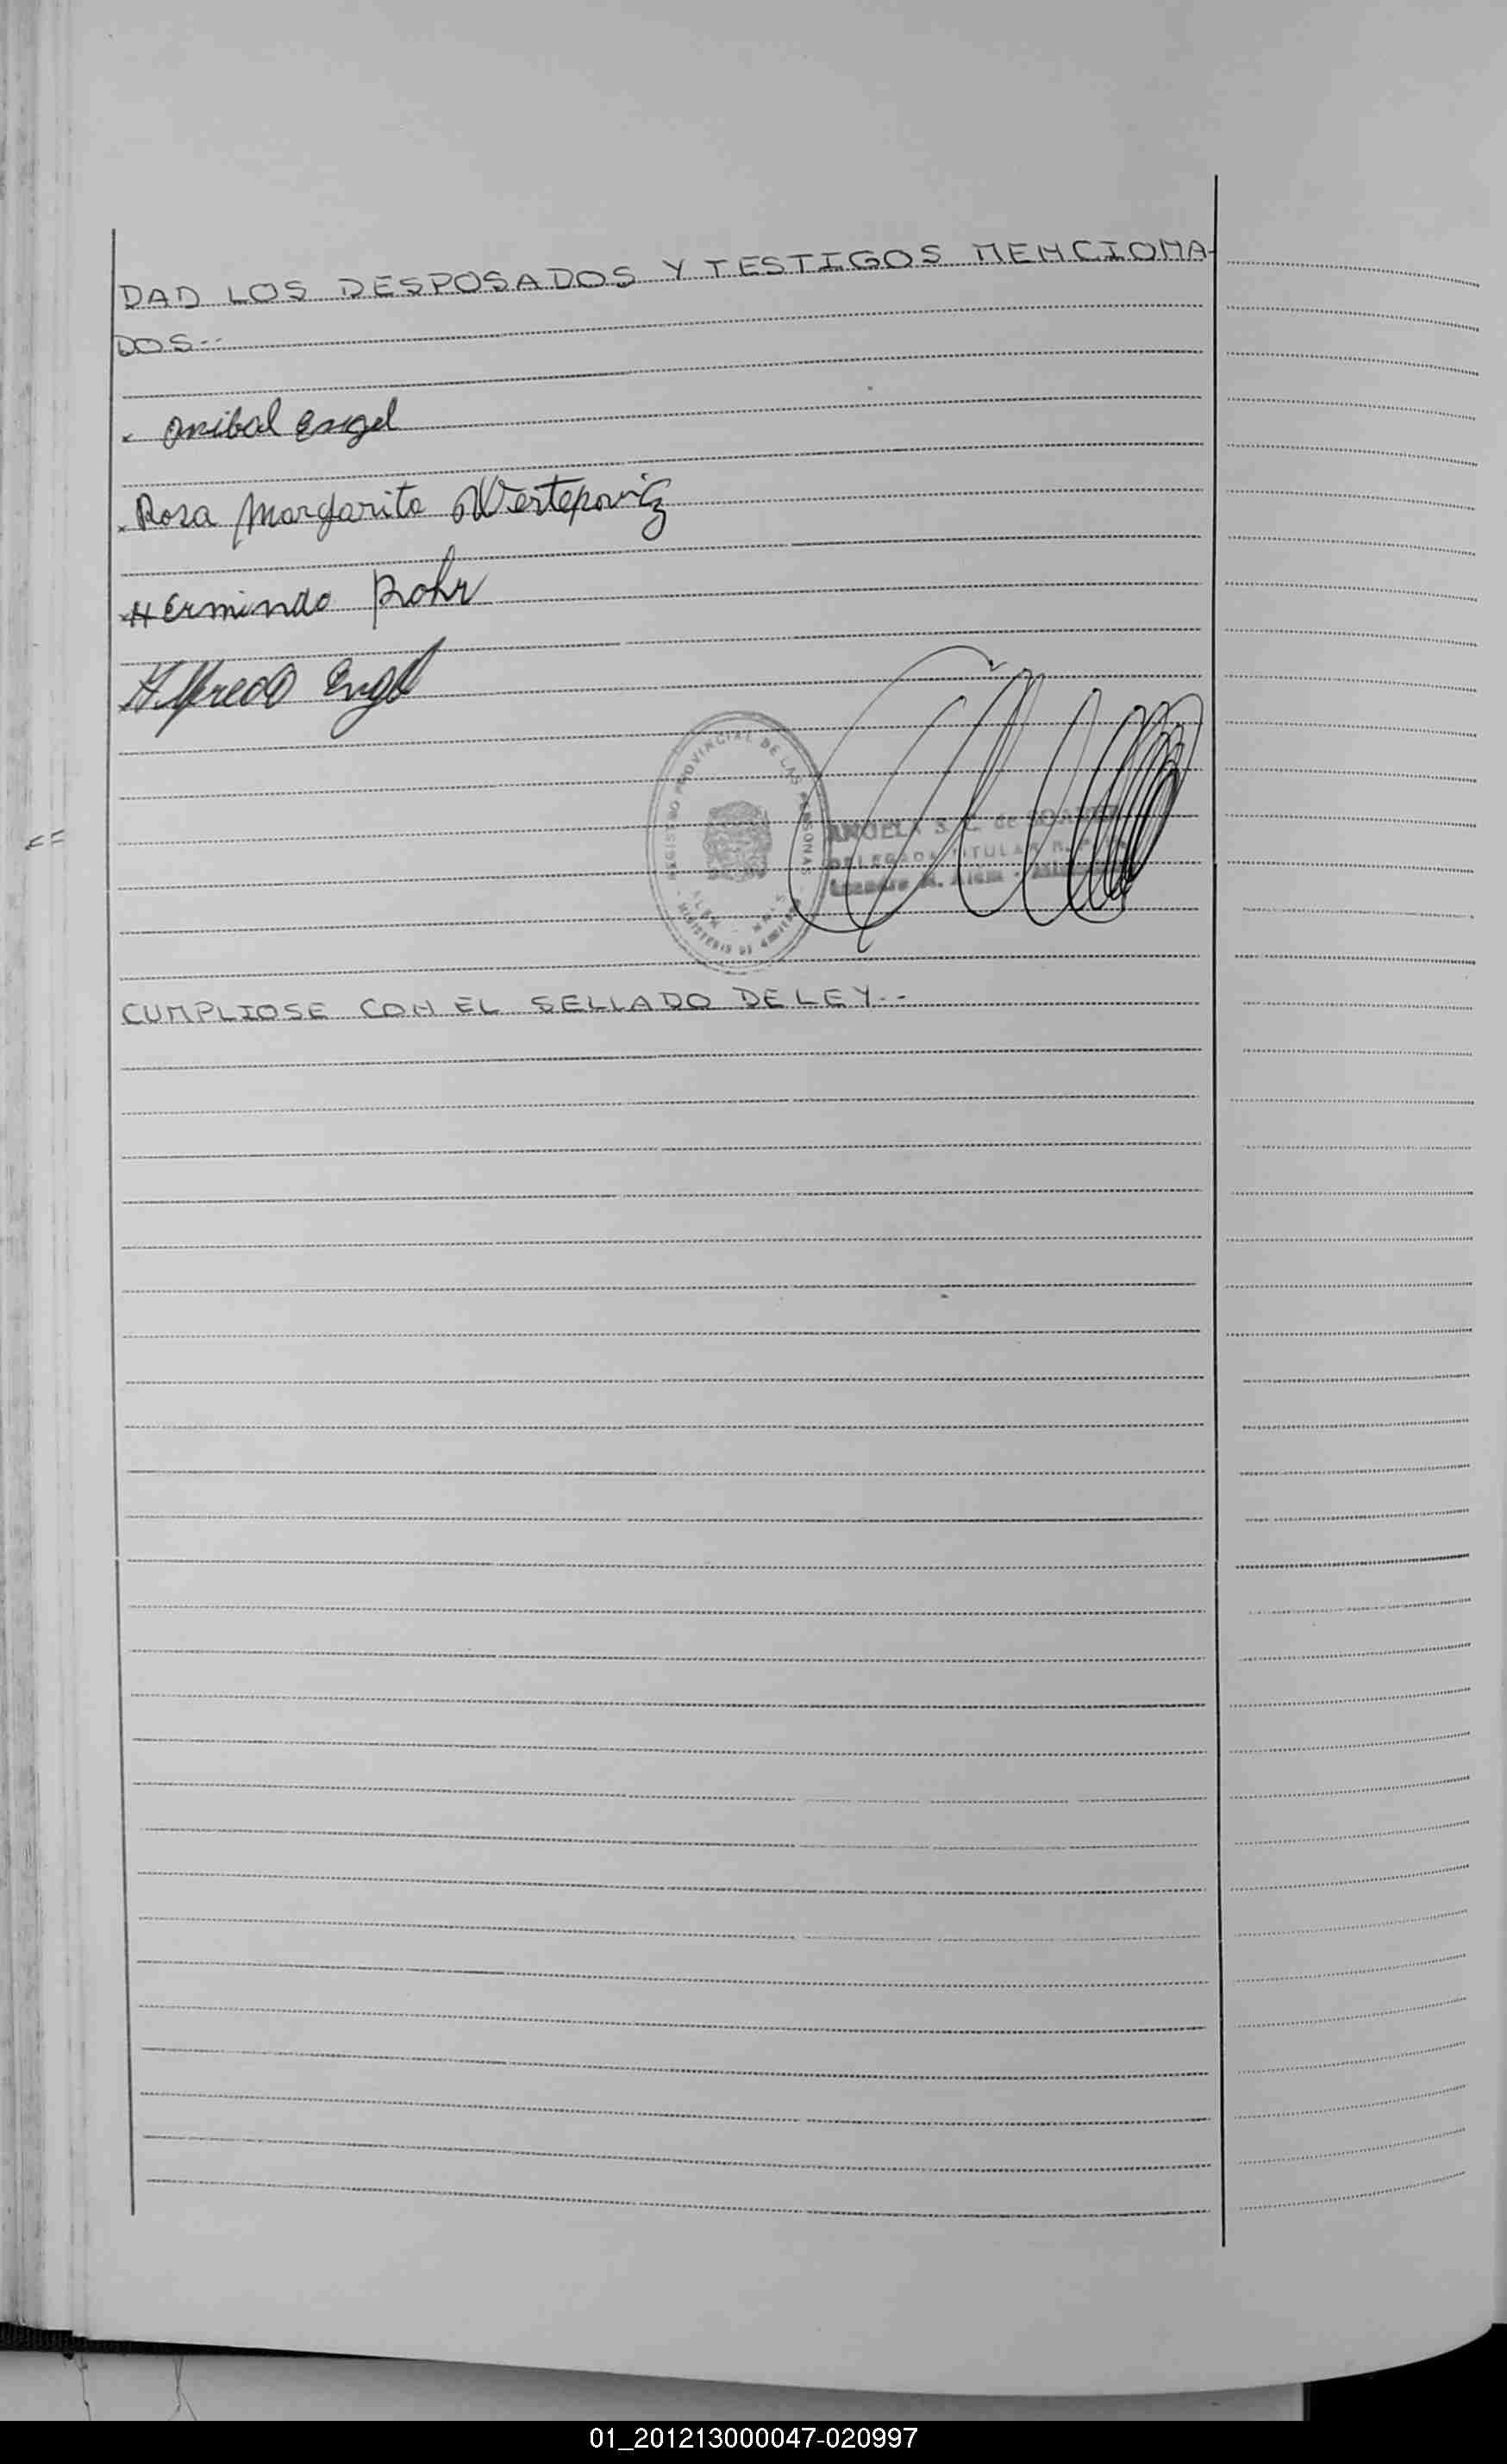 DAD LOS DESPOSADOS Y TESTIGOS MENCIONA-
DOS.-
Anibal Engel
Rosa Margarita Wertepoviz
Hermindo Rohr
Alfredo Engel
REGISTRO PROVINCIAL DE LAS PERSONAS
MINISTERIO DE GOBIERNO
ANGELA S. C. de
DELEGADA TITULAR R.P.
Leandro N. Alem - Misiones
CUMPLIOSE CON EL SELLADO DE LEY.-
01_201213000047-020997